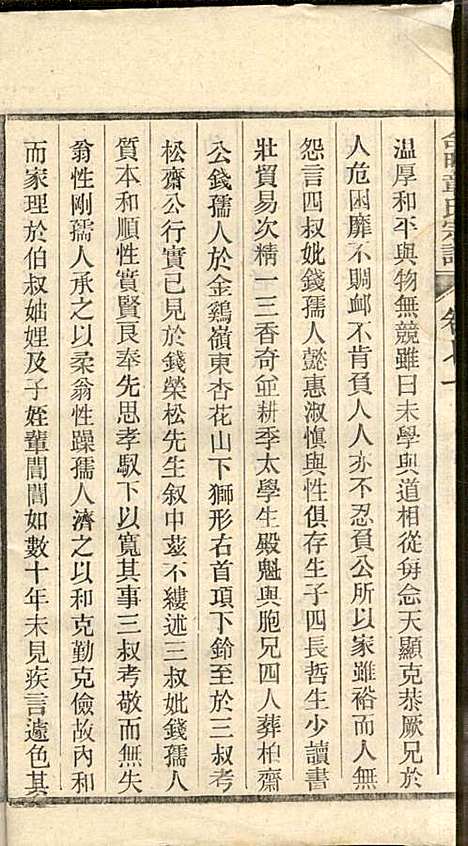 章氏宗譜 卷
溫厚和平與物無競雖曰未學與道相從每念天顯克恭厥兄於
人危困靡不賙邺不肯負人人亦不忍負公所以家雖裕而人無
怨言四叔妣錢孺人懿惠淑愼與性俱存生子四長哲生少讀書
壯貿易次精一三香奇並耕季太學生殿魁與胞兄四人葬柏齋
公錢孺人於金鷄嶺東杏花山下獅形右首項下鈴至於三叔考
松齋公行實已見於錢榮松先生叙中茲不縷述三叔妣錢孺人
質本和順性實賢良奉先思孝馭下以寬其事三叔考敬而無失
翁性剛孺人承之以柔翁性躁孺人濟之以和克勤克儉故內和
而家理於伯叔妯娌及子姪輩誾誾如數十年未見疾言遽色其